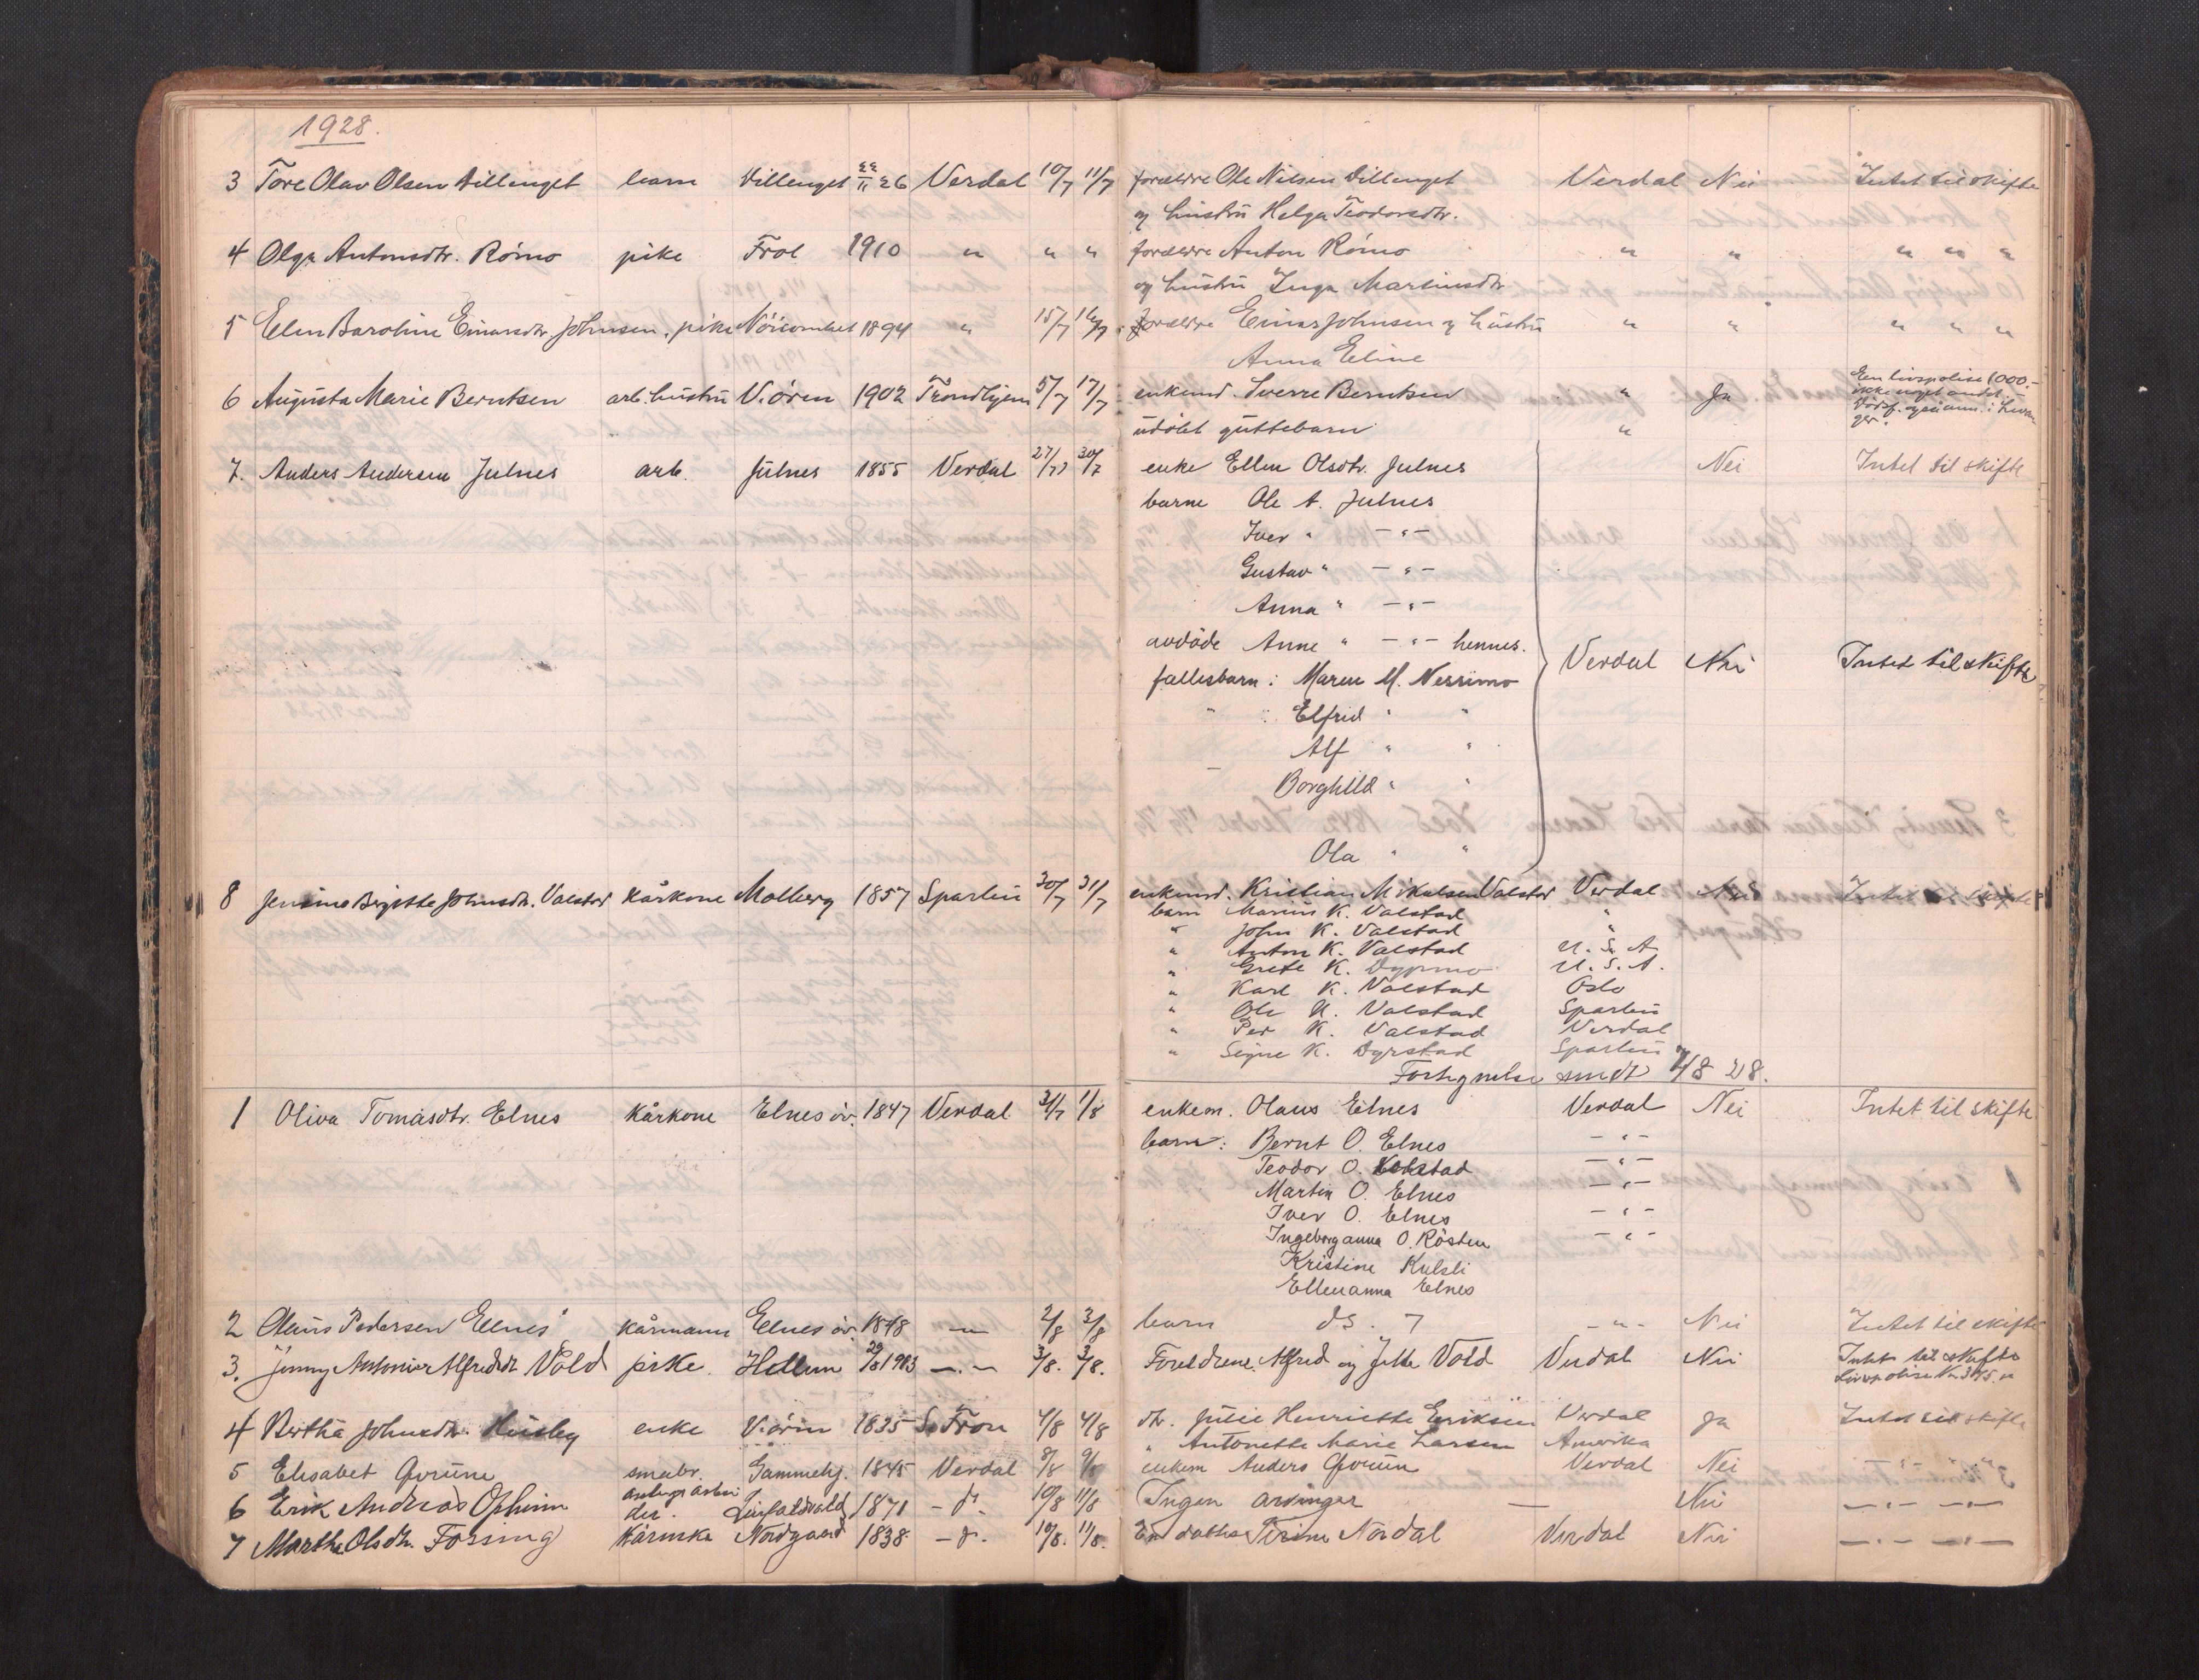 1928.
3 Tore Olav Olsen Dillenget barn Dillenget 22/11 26 Verdal 10/7 11/7 foreldre Ole Nilsen Dillenget Verdal Nei Intet til skifte
og hustru Helga Teodorsdtr.
4 Olga Antonsdtr. Rømo pike Frol 1910 " " " foreldre Anton Rømo " " " " "
og hustru Inga Martinsdtr
5 Elen Baroline Einarsdtr. Johnsen, pike 1894 " 15/7 16/7 foreldre Einar Johnsen og hustru " " " " "
Anna Eline
6 Augusta Marie Berntsen arb. hustru V.øren 1902 Trondhjem 5/7 17/7 enkemd. Sverre Berntsen " Ja En livspolise 1000.-
ikke noget andet.
udøbt guttebarn "
7. Anders Andersen Julnes arb. Julnes 1855 Verdal 27/7 30/7 enke Ellen Olsdtr. Julnes Nei Intet til skifte
barne Ole A. Julnes
Iver " — " —
Gustav " — " —
Anna " — " —
avdøde Anne " — " — hennes.
fallesbarn: Maren M. Nessimo Verdal Nei Intet til skifte
" : Elfrid " "
Alf " "
Borghild " "
Ola " "
8 Jensine Birgitte Johnsdtr. Valstad kårkone Molberg 1857 Sparbu 30/7 31/7 enkemd. Kristian Mikalsen Valstad Verdal Nei Intet til skifte
barn Marius K. Valstad "
" John K. Valstad "
" Anton K. Valstad U.S.A.
" Grete K. Dypmo U.S.A.
" Karl K. Valstad Oslo
" Ole K. Valstad Sparbu
" Per K. Valstad Verdal
" Signe K. Dyrstad Sparbu
Fortegnelse sendt 4/8 28.
1 Oliva Tomasdtr. Elnes Kårkone Elnes øv. 1847 Verdal 31/7 1/8 enkem. Olaus Elnes Verdal Nei Intet til skifte
barn: Bernt O. Elnes — " —
Teodor O. Kolstad — " —
Martin O. Elnes — " —
Iver O. Elnes — " —
Ingeborganna O. Røsten — " —
Kristine Kulsli
Ellenanna Elnes
2 Olaus Pedersen Elnes kårmann Elnes øv. 1848 — " — 2/8 3/8 barn ds. 7 — " — Nei Intet til skifte
3. Jenny Antonie Alfredsdt Vold pike. Hellem 29/8 1903 — " — 3/8. 3/8. Foreldrene Alfred og Jette Vold Verdal Nei Intet til skifte
Livspolise
4 Bertha Johnsdtr. Husby enke V.øren 1835 S. Fron 4/8 4/8 dtr. Julie Henriette Eriksen Verdal Ja Intet til skifte
" Antonette Marie Larsen Amerika
5 Elisabet Gvrune smabr. Gammelg. 1845 Verdal 8/8 9/8 enkem Anders Gvrune Verdal Nei — " — — " —
6 Erik Andreas Ophim anlegs arbei
der. 1871 — d. 10/8 11/8 Ingen arvinger — Nei — " — — " —
7 Martha Olsdtr. Fossing Kårenke Nordgaard 1838 — d. 10/8. 11/8. En datter Tirine Nordal Verdal Nei — " — — " —